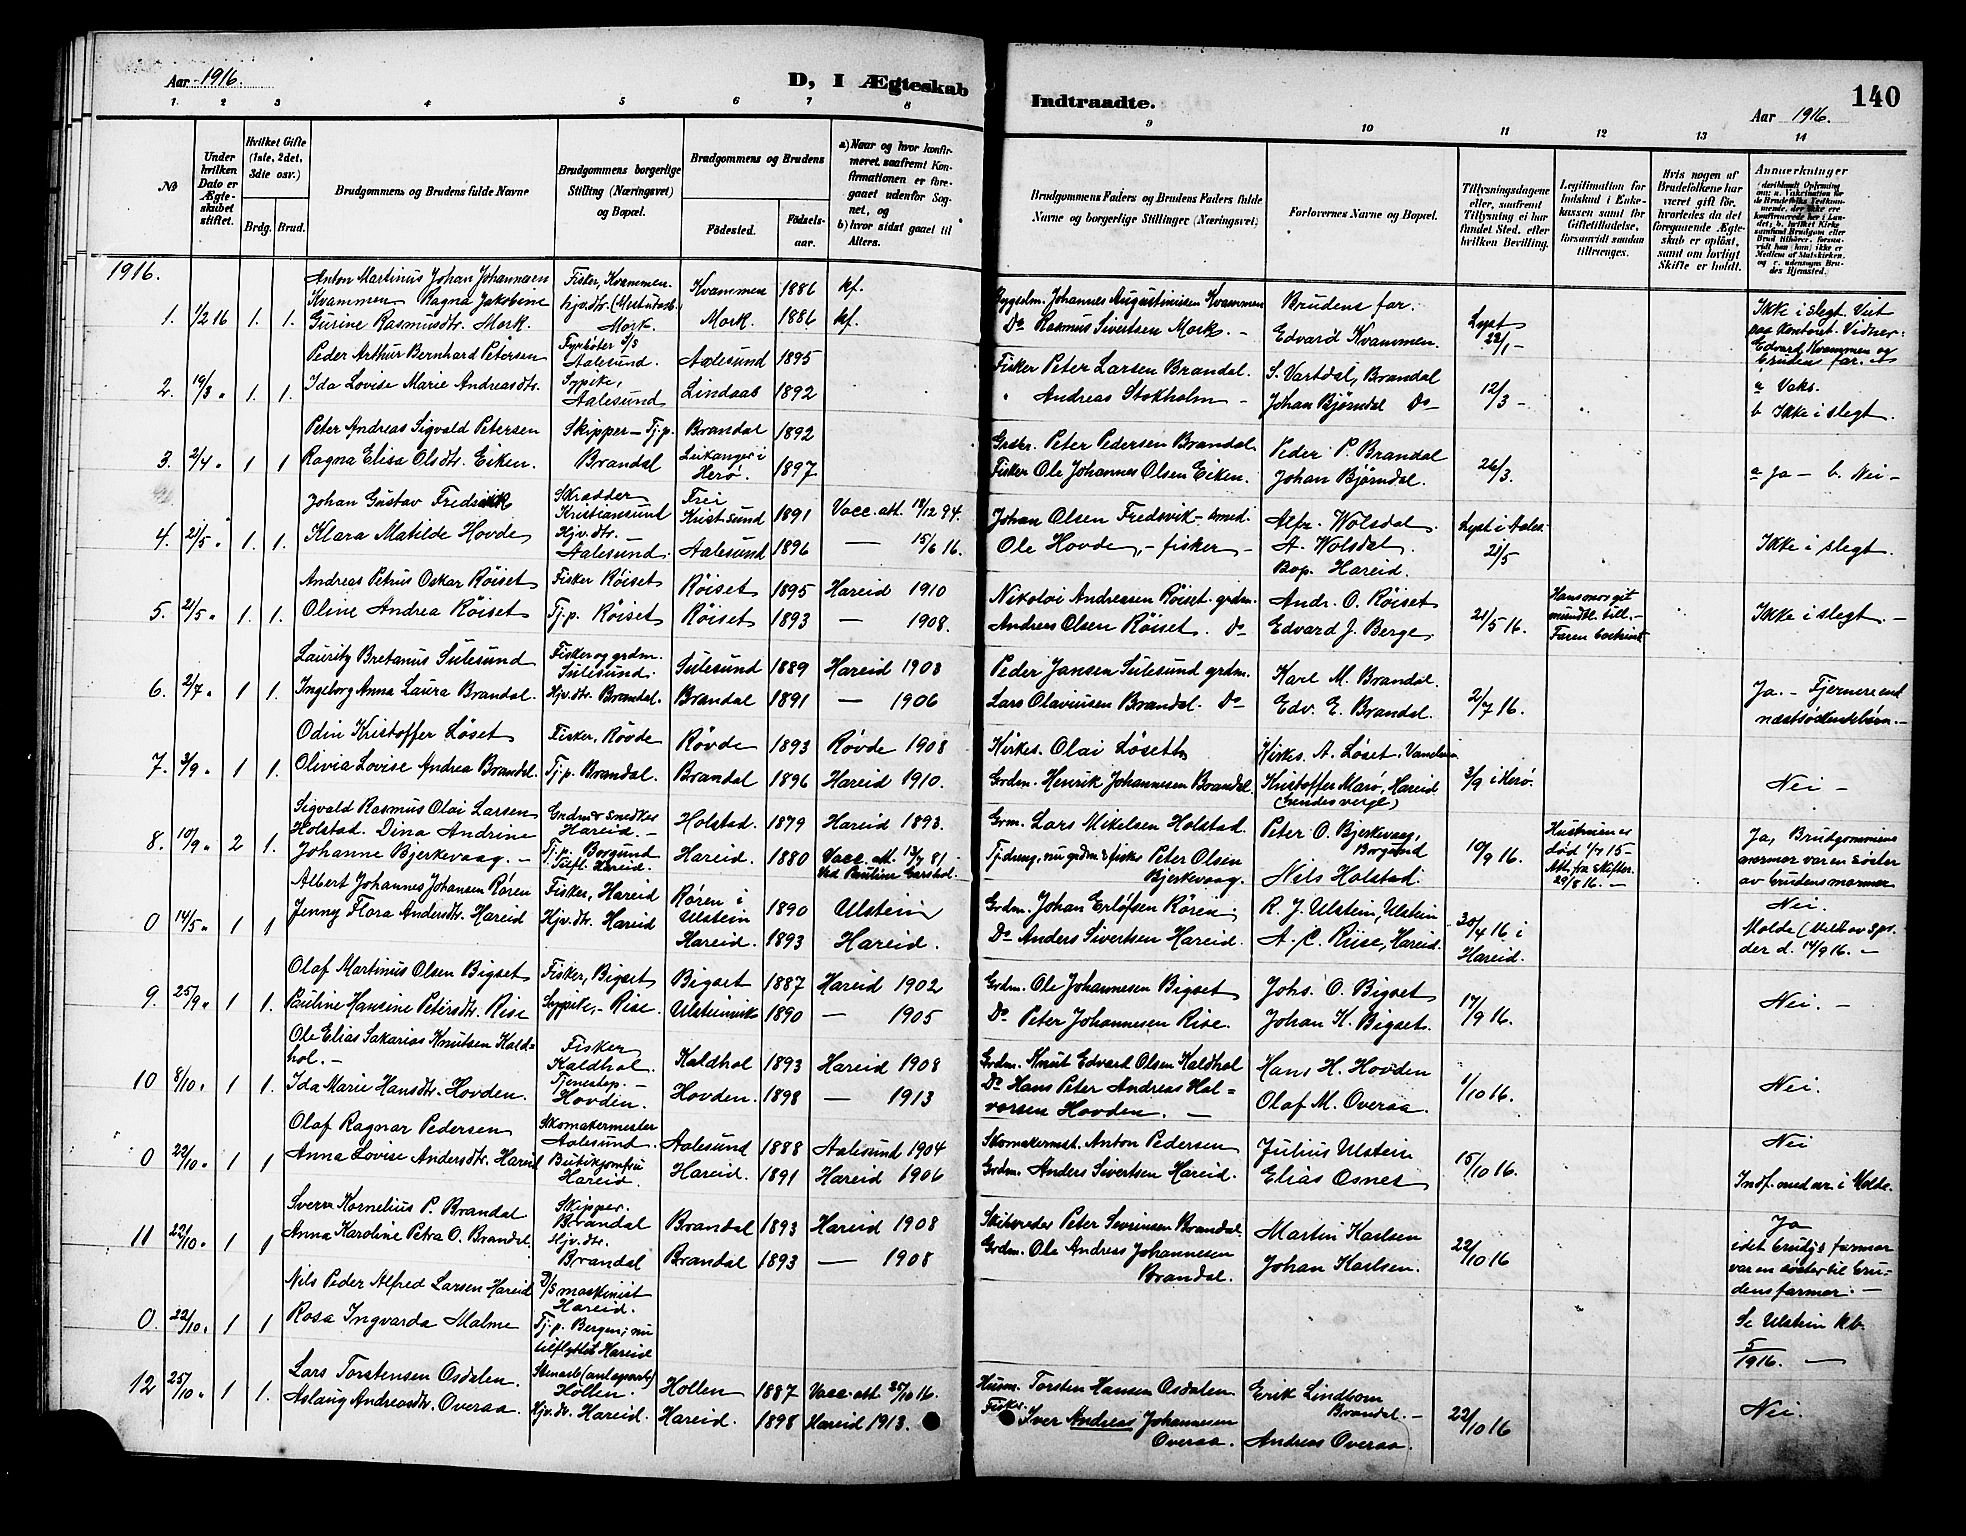 Aar 1916.
D, I Ægteskab
Indtraadte.
140
Aar 1916.
1
2
3
4
5
6
7
8
9
10
11
12
13
14
No
Under hvilken Dato er Ægteskabet stiftet.
Hvilket Gifte (1ste, 2det, 3die osv.)
Brdg.
Brud.
Brudgommens og Brudens fulde Navne
Brudgommens borgerlige Stilling (Næringsvei) og Bopæl.
Brudgommens og Brudens
Fødested.
Fødsels-aar.
a) Naar og hvor konfirmeret, saafremt Konfirmationen er foregaaet udenfor Sognet, og
b) hvor sidst gaaet til Alters.
Brudgommens Faders og Brudens Faders fulde Navne og borgerlige Stillinger (Næringsvei)
Forlovernes Navne og Bopæl.
Tillysningsdagene eller, saafremt Tillysning ei har fundet Sted, efter hvilken Bevilling.
Legitimation for Indskud i Enkekassen samt for Giftetilladelse, forsaavidt saadan tiltrænges.
Hvis nogen af Brudefolkene har været gift før, hvorledes da det foregaaende Ægteskab er opløst, samt om lovligt Skifte er holdt.
Anmerkninger
1916.
Anton Martinus Johan Johannsen Fisker, Kvammen. Kvammen 1886 kf. Johannes Augustinusen Kvammen Brudens far. Ikke i slegt. Viet
1. 1/2 16 1. 1. Kvammen Ragna Jakobine Hjv.dtr. Do Rasmus Sivertsen Mork. - Edvard Kvammen. Lyst 22/1 - paa kontoret. Vidner:
Gurine Rasmusdtr. Mork. Mork. Mork. 1886 kf. Edvard Kvammen og Brudens far.
Peder Arthur Bernhard Petersen Fyrbøter D/S Aalesund. Aalesund 1895 Fisker Peter Larsen Brandal. S. Vartdal, Brandal a Vaks.
2. 19/3 " 1. 1. Ida Lovise Marie Andreasdtr. Sypike, Aalesund Lindaas 1892 " Andreas Stokholm - Johan Bjørndal Do 12/3 - b Ikke i slegt.
Peter Andreas Sigvald Petersen Skipper - Tj.p. Brandal 1892 Grdbr. Peter Pedersen Brandal Peder P. Brandal
3. 2/4 " 1 1 Ragna Elisa Olsdtr. Eiken. Brandal Leikanger i Herø. 1897 Fisker Ole Johannes Olsen Eiken. Johan Bjørndal. 26/3. a Ja - b. Nei -
Johan Gustav Fredsvik Skrædder Kristiansund Frei Krist.sund 1891 Vacc. att. 18/12 94. Johan Olsen Fredsvik - smed. Alfr. Wolsdal. Lyst i Aales.
4. 21/5 " 1. 1. Klara Matilde Hovde Hjv.dtr. - Aalesund. Aalesund 1896 — 15/6 16. Ole Hovde, - fisker - A. Wolsdal. Bop. Hareid. 21/5 Ikke i slegt.
Andreas Petrus Oskar Røiset Fisker Røiset Røiset 1895 Hareid 1910 Nikolai Andreasen Røiset. grdm. Andr. O. Røiset
5. 21/5 " 1. 1. Oline Andrea Røiset Tj.p. Røiset Røiset 1893 — 1908. Andreas Olsen Røiset. Do Edvard J. Berge 21/5 16. Hans mor git mundtl. till. - Ikke i slegt. -
Lauritz Bretanus Sulesund Fisker og grdm. Sulesund. Sulesund 1889 Hareid 1903 Peder Jansen Sulesund grdm. Karl M. Brandal.
6. 2/7 " 1 1. Ingeborg Anna Laura Brandal. Hjv.dtr. Brandal. Brandal 1891 — 1906 Lars Olaviusen Brandal. Do Edv. E. Brandal. 2/7 16. Ja. - Fjernere end næstsødskendebørn. -
Odin Kristoffer Løset Fisker, Røvde Røvde 1893 Røvde 1908 Kirkes. Olai Løseth Kirkes. A. Løset.
7. 3/9 " 1 1. Olivia Lovise Andrea Brandal. Tj.p. Brandal. Brandal 1896 Hareid 1910. Grdm. Henrik Johannesen Brandal. Kristoffer Marø, Hareid 3/9 i Herø. Nei -
Sigvald Rasmus Olai Larsen Grdm & snedker Hareid. - Holstad. 1879 Hareid 1893. Grm. Lars Mikelsen Holstad. Peter O. Bjerkevaag, Borgund
8. 10/9 " 2 1. Holstad. Dina Andrine Johanne Bjerkevaag. - Tj.p. Borgund Tilfl. Hareid. Hareid. 1880 Vacc. att. 13/7 81. ved Pauline Garshol. nu grdm & fisker Peter Olsen Bjerkvaag. Nils Holstad. 10/9 16. Hustruen er død 1/7 15 - Att. fra skifter. 29/8 16. - Ja, Brudgommens mormor var en søster av brudens mormor
Albert Johannes Johansen Røren Fisker, Hareid Røren i Ulstein 1890 Ulstein Grdm. Johan Erlofsen Røren. R. J. Ulstein, Ulstein Nei.
0 14/5 " 1 1 Jenny Flora Andersdtr. Hareid Hjv.dtr. Hareid Hareid. 1893 Hareid. Do Anders Sivertsen Hareid. A. C. Riise, Hareid. 30/4 16 i Hareid. Molde der d. 14/9 16. -
Olaf Martinus Olsen Bigset Fisker, Bigset Bigset 1887 Hareid 1902 Grdm. Ole Johannesen Bigset Johs. O. Bigset
9. 25/9 " 1 1. Pauline Hansine Petersdtr. Rise Sypike, - Rise. Ulsteinvik 1890 — 1905 Do Peter Johannesen Rise. Johan K. Bigset. 17/9 16. Nei. -
Ole Elias Sakarias Knutsen Kaldhol. - Fisker Kaldhol Kaldhol 1893 Hareid 1908 Grdm. Knut Edvard Olsen Kaldhol Hans H. Hovden
10 8/10 " 1 1. Ida Marie Hansdtr. Hovden. Tjenestep. - Hovden. Hovden. 1898 — 1913 Do Hans Peter Andreas Halvorsen Hovden. - Olaf M. Overaa. 1/10 16. Nei.
Olaf Ragnar Pedersen Skomakermester Aalesund. Aalesund 1888 Aalesund 1904 Skomakermst. Anton Pedersen Julius Ulstein Nei
0 22/10 " 1 1 Anna Lovise Andersdtr. Hareid Butikjomfru Hareid. Hareid. 1891 Hareid 1906 Grdm. Anders Sivertsen Hareid. Elias Osnes 15/10 16. Indf. med nr. i Molde.
Sverre Kornelius P. Brandal Skipper. Brandal Brandal 1893 Hareid 1908 Skibsreder Peter Severinsen Brandal. Martin Karlsen Ja
11 22/10 " 1 1 Anna Karoline Petra O. Brandal. Hjv.dtr. Brandal Brandal 1893 — 1908 Grdm. Ole Andreas Johannesen Brandal. Johan Karlsen. 22/10 16 idet brudg.s farmor var en søster til brudens farmor. -
Nils Peder Alfred Larsen Hareid D/S maskinist Hareid.
0. 22/10 " 1 1 Rosa Ingvarda Malme Tj.p. Bergen; nu tilflyttet Hareid Se Ulstein kb. 5/1916. -
Lars Torstensen Osdalen. Stenarb. (anlægsarb.) Hollen. Hollen 1887 Vacc. att 25/10 16. Husm. Torsten Hansen Osdalen Erik Lindbom Brandal. -
12 25/10 " 1 1. Aslaug Andreasdtr. Overaa. Hjv.dtr. Hareid. Hareid. 1898 Hareid 1913. Fisker Iver Andreas Johannesen Overaa. Andreas Overaa. 22/10 16 Nei.